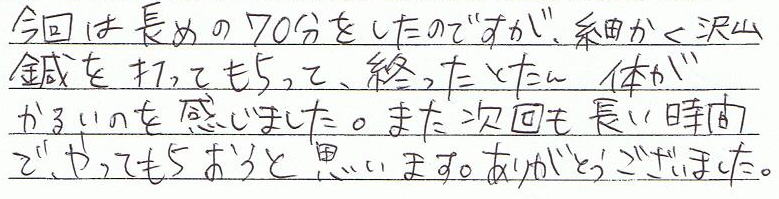 今回は長めの70分をしたのですが、細かく沢山
鍼を打ってもらって、終ったとたん 体が
かるいのを感じました。また次回も長い時間
で、やってもらおうと思います。ありがとうございました。